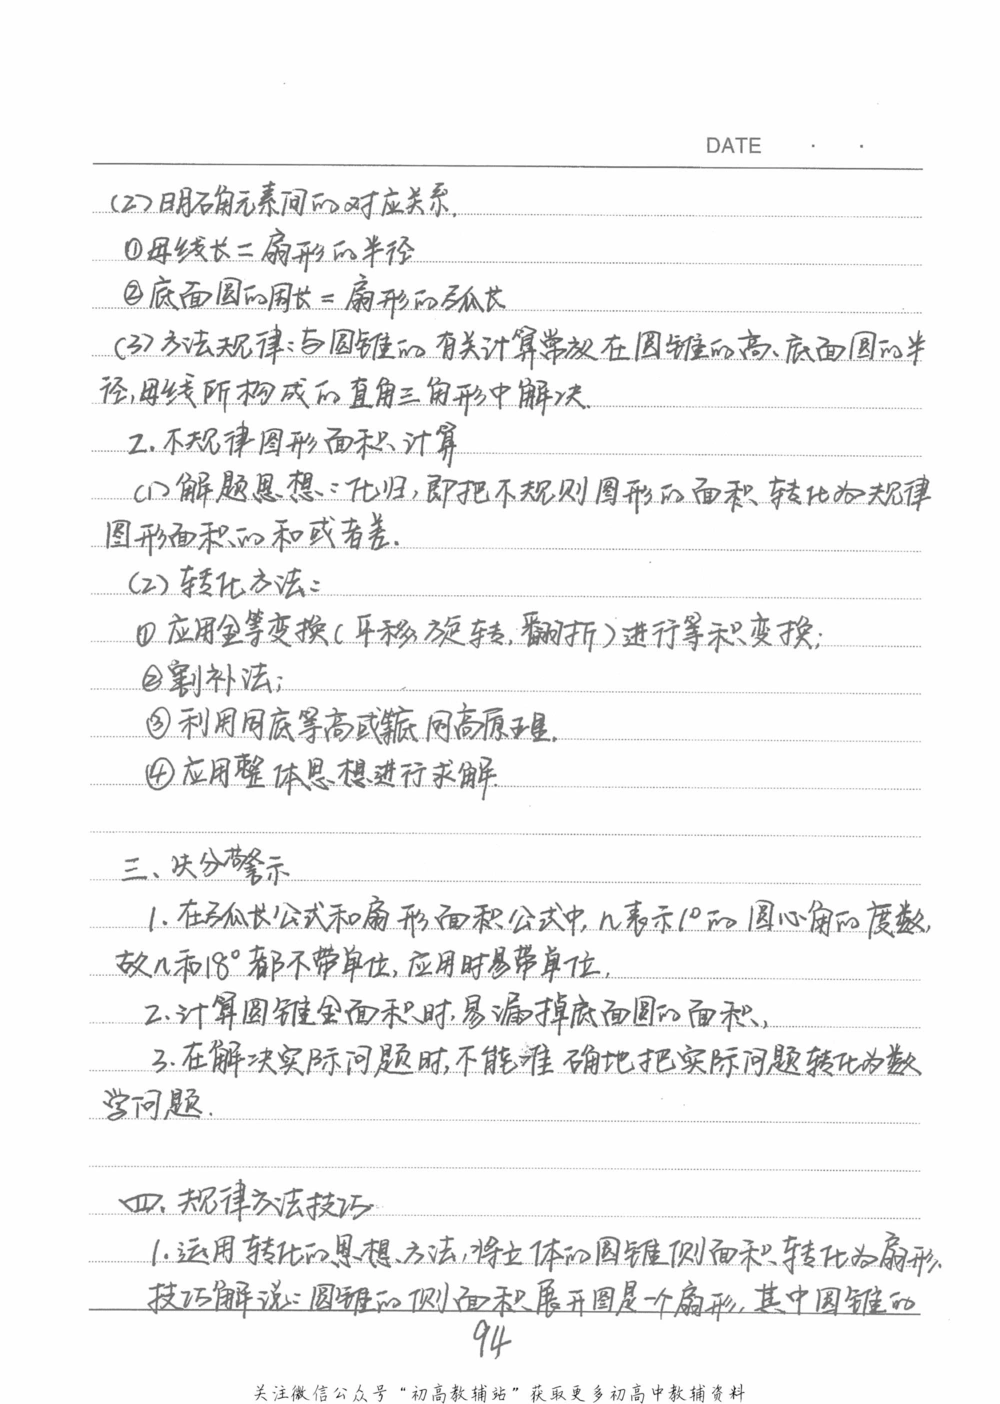 DATE · ·
(2)明确元素间的对应关系.
①母线长=扇形的半径
②底面圆的周长=扇形的弧长
(3)方法规律:与圆锥的有关计算常放在圆锥的高、底面圆的半
径,母线所构成的直角三角形中解决.
2.不规律图形面积计算
(1)解题思想:化归,即把不规则图形的面积转化为规律
图形面积的和或者差.
(2)转化方法:
①应用全等变换(平移,旋转,翻折)进行等积变换;
②割补法;
③利用同底等高或等底同高原理.
④应用整体思想进行求解.
三、失分警示
1.在弧长公式和扇形面积公式中,n表示1°的圆心角的度数,
故n和18°都不带单位,应用时易带单位.
2.计算圆锥全面积时,易漏掉底面圆的面积,
3.在解决实际问题时,不能准确地把实际问题转化为数
学问题.
四、规律方法技巧
1.运用转化的思想方法,将立体的圆锥侧面积转化为扇形.
技巧解说:圆锥的侧面积展开图是一个扇形,其中圆锥的
94
关注微信公众号“初高教辅站”获取更多初高中教辅资料